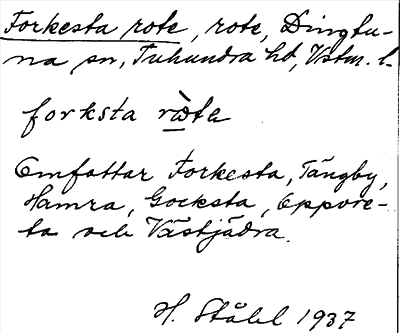 Forkesta rote, rote, Dingtu-
na sn, Tuhundra hd, Vstm. l.
forksta ròte
Omfattar Forkesta, Tängby,
Hamra, Gocksta, Eppore-
ta och Västjädra.
H. Ståhl 1937